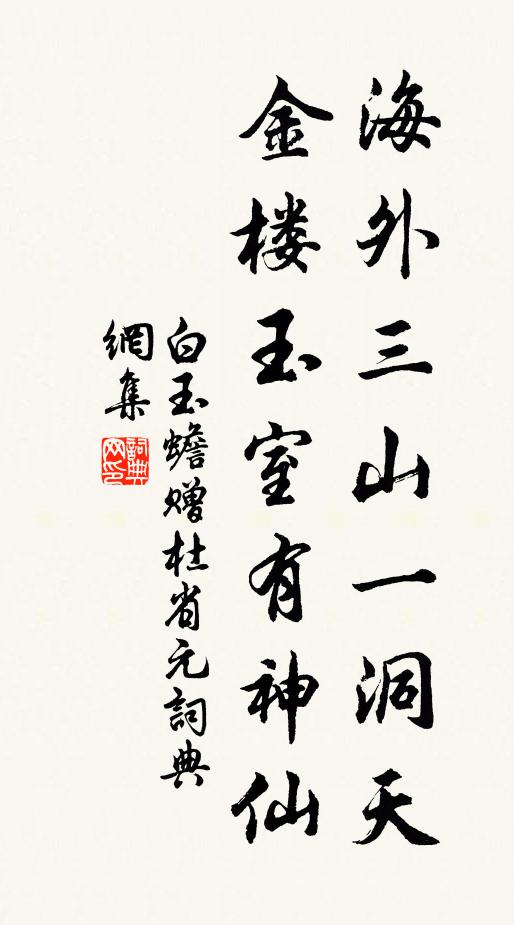 海外三山一洞天
金楼玉室有神仙
白玉蟾赠杜省元詞典
網集
詞典
网印